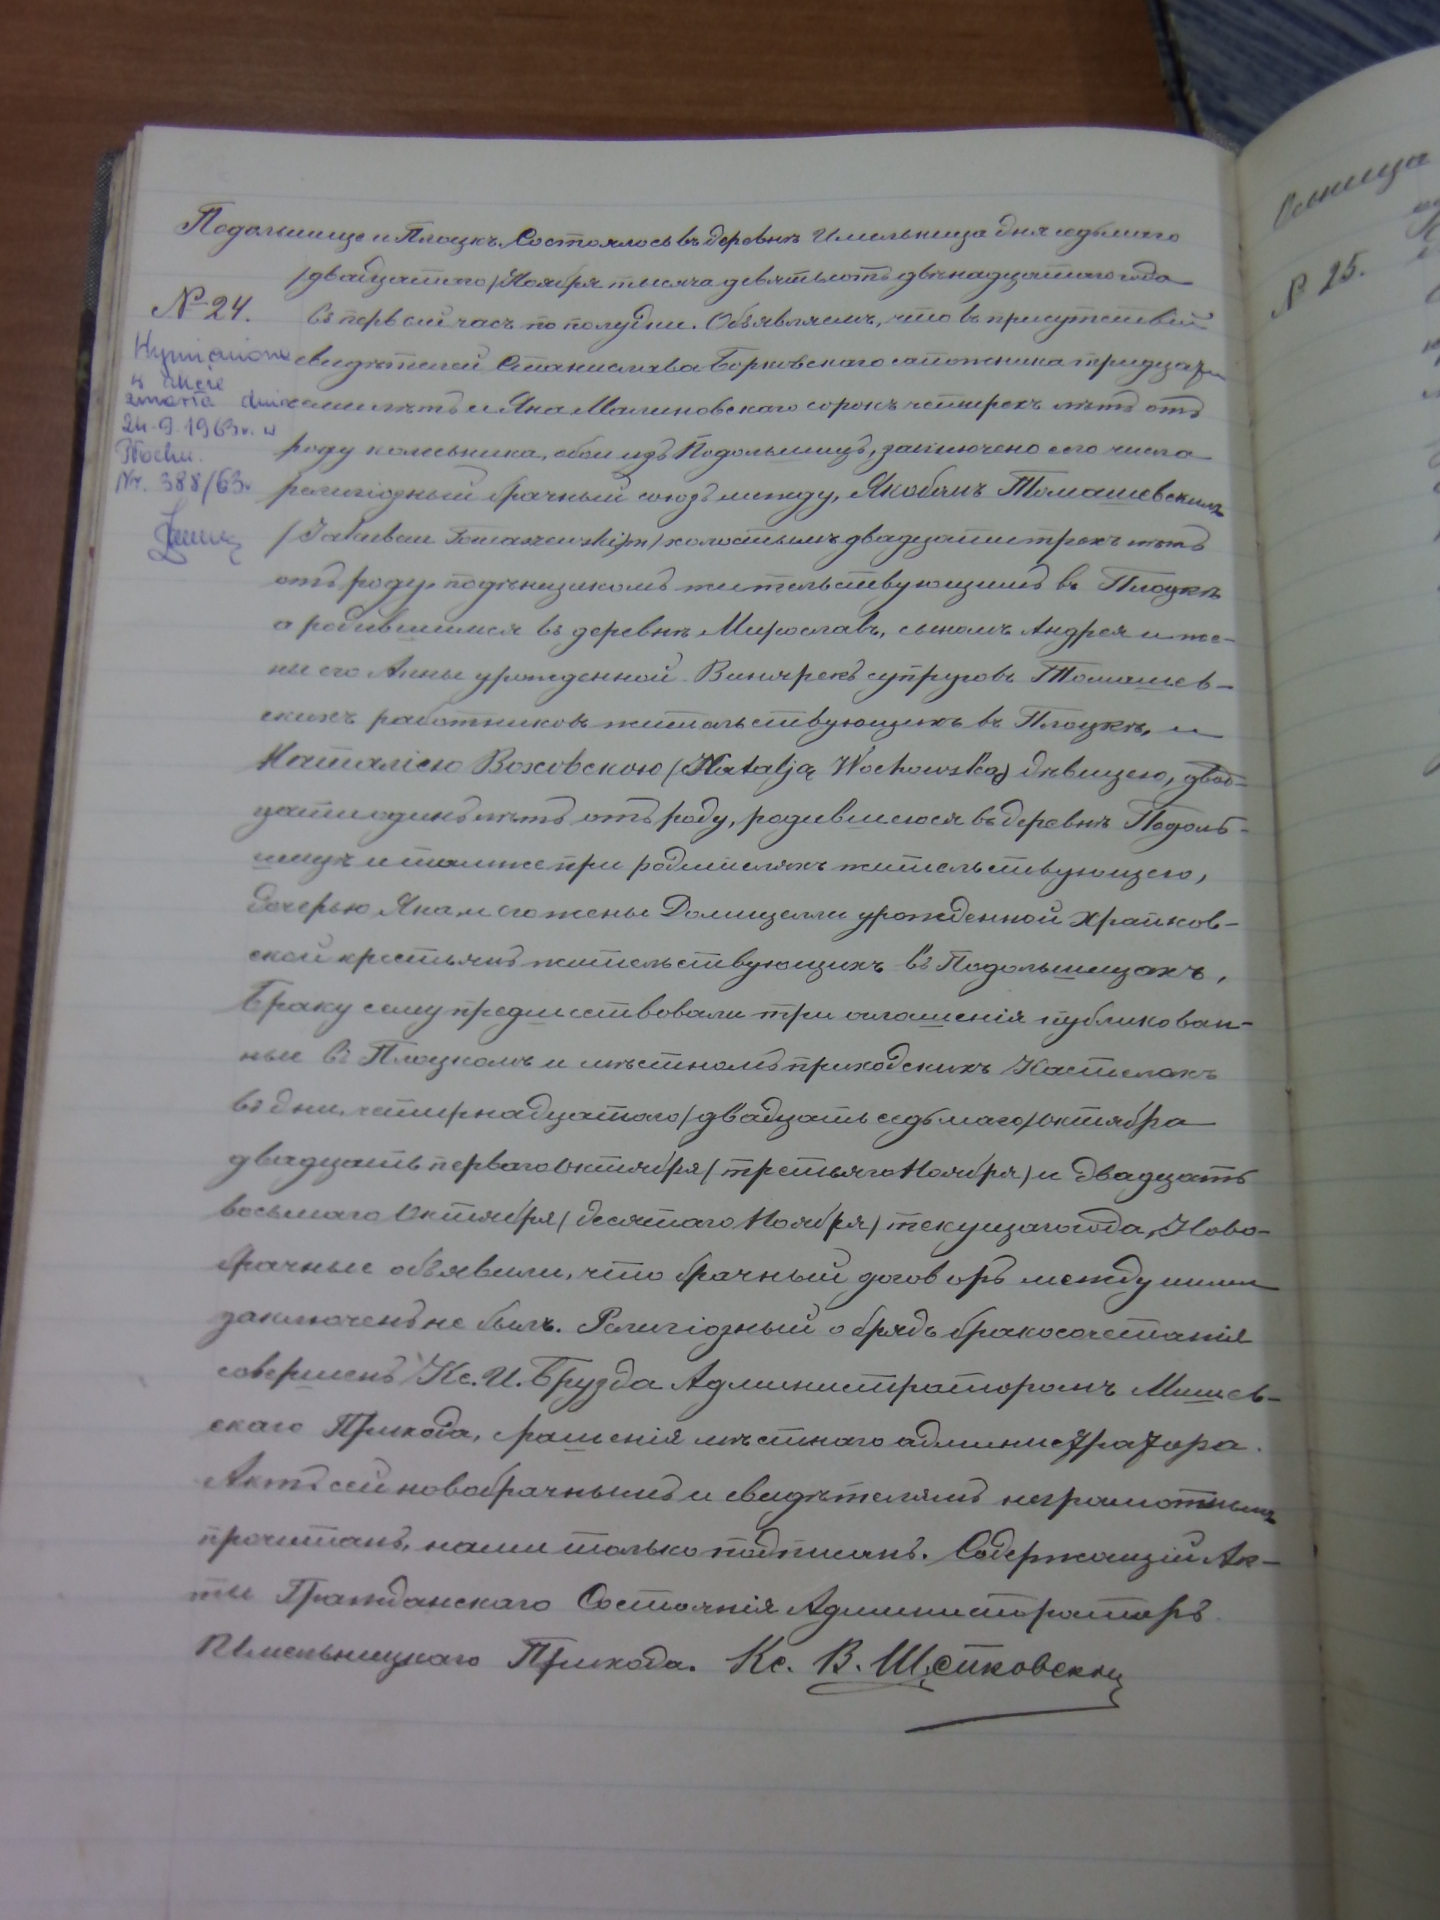 Подольшице и Плоцкъ. Состоялось въ деревнѣ Имельница дня седьмаго
/двадцатаго/ Ноября тысяча девятьсотъ двѣнадцатаго года
№ 24.
въ первый часъ по полудни. Объявляемъ, что въ присутствіи
свидѣтелей Станислава Борковскаго сапожника тридцати
семи лѣтъ и Яна Малиновскаго сорокъ четырехъ лѣтъ отъ
w akcie
zmarła dnia
24.9.1963 r. w
Płocku.
Nr. 388/63 r.
роду колесника, обои изъ Подольшицъ, заключено сего числа
религіозный брачный союзъ между, Якобомъ Томашевскимъ
/Jakubem Tomaszewskim/ холостымъ двадцати трехъ лѣтъ
отъ роду, поденщикомъ жительствующимъ въ Плоцкѣ
а родившимся въ деревнѣ Мирославъ, сыномъ Андрея и же-
ны его Анны урожденной Винярекъ супруговъ Томашев-
скихъ работниковъ жительствующихъ въ Плоцкѣ, и
Наталіею Воховскою (Natalją Wochowską) дѣвицею, двад-
цати одинъ лѣтъ отъ роду, родившеюся въ деревнѣ Подоль-
шицъ и тамже при родителяхъ жительствующего,
дочерью Яна и его жены Домицелли урожденной Храпков-
ской крестьянъ жительствующихъ въ Подольшицахъ,
Браку сему предшествовали три оглашенія публикован-
ные въ Плоцкомъ и мѣстномъ приходскихъ Костелахъ
въ дни четырнадцатаго /двадцать седьмаго/ Октября
двадцать перваго Октября (третьяго Ноября) и двадцать
восьмаго Октября (десятаго Ноября) текущаго года, Ново-
брачные объявили, что брачный договоръ между ними
заключенъ не былъ. Религіозный обрядъ бракосочетанія
совершенъ Кс. И. Брузда Администраторомъ Мишев-
скаго Прихода, срашенія мѣстнаго администратора.
Актъ сей новобрачнымъ и свидѣтелямъ неграмотнымъ
прочитанъ, нами только подписанъ. Содержащій Ак-
ты Гражданскаго Состоянія Администраторъ
Имельницкаго Прихода. Кс. В. Щепковскій
№ 25.